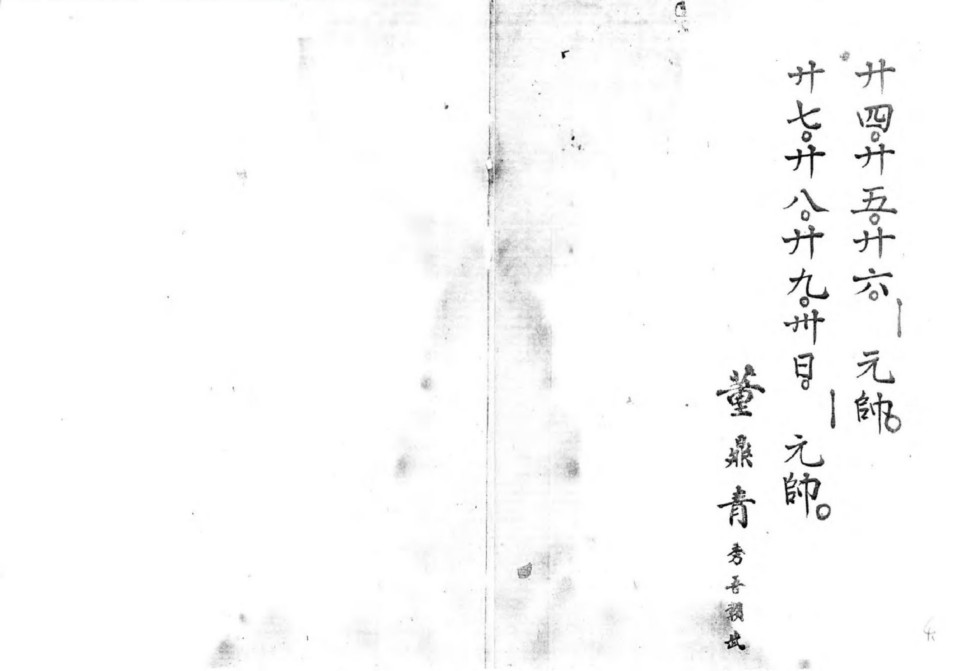 廿四。廿五。廿六。 元帥。
廿七。廿八。廿九。卅日。 元帥。
董鼎青秀吾